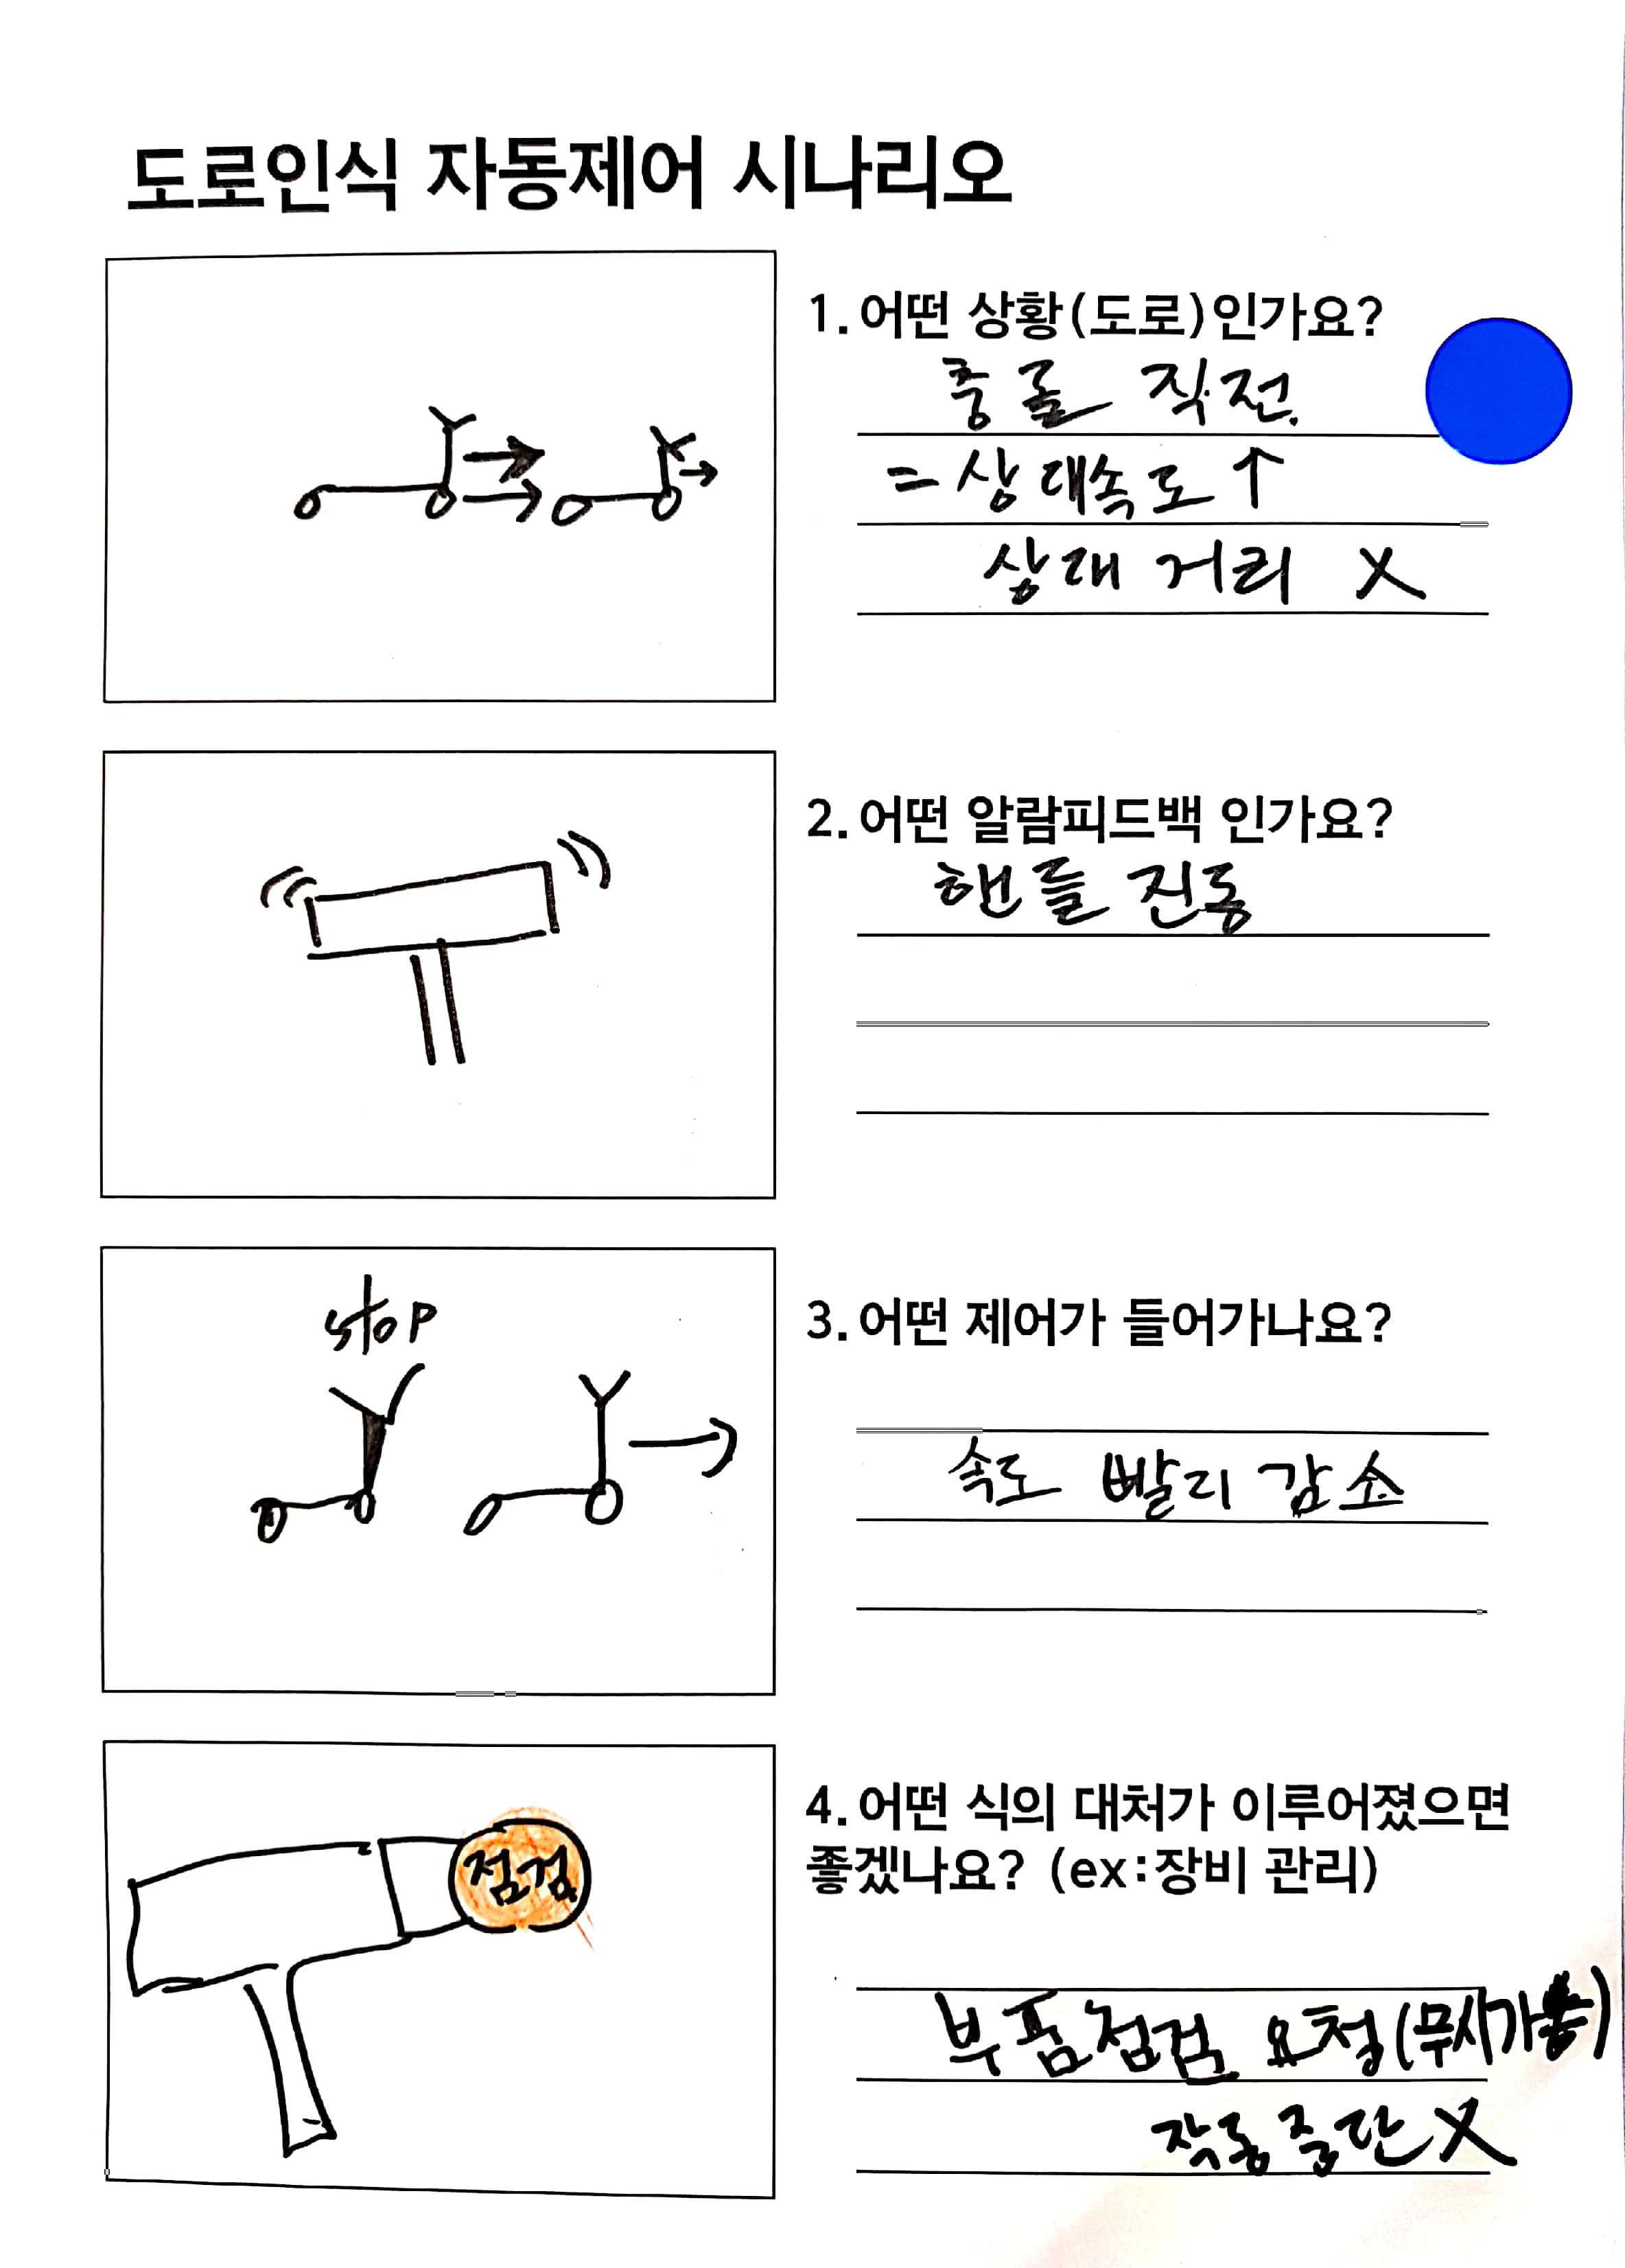 도로인식 자동제어 시나리오
1. 어떤 상황(도로)인가요?
충돌 직전.
= 상대속도 ↑
상대 거리 X
2. 어떤 알람피드백 인가요?
핸들 진동
stop
3. 어떤 제어가 들어가나요?
속도 빨리 감소
점검
4. 어떤 식의 대처가 이루어졌으면
좋겠나요? (ex:장비 관리)
부품점검 요청(무시가능)
작동 중단 X